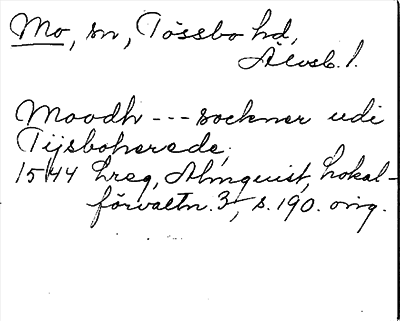 Mo, sn, Tössbo hd,
Älvsb. l.
Moodh --- sockner udi
Tijsboherede,
1544 hreg, Almquist, Lokal-
förvaltn. 3, s. 190. orig.